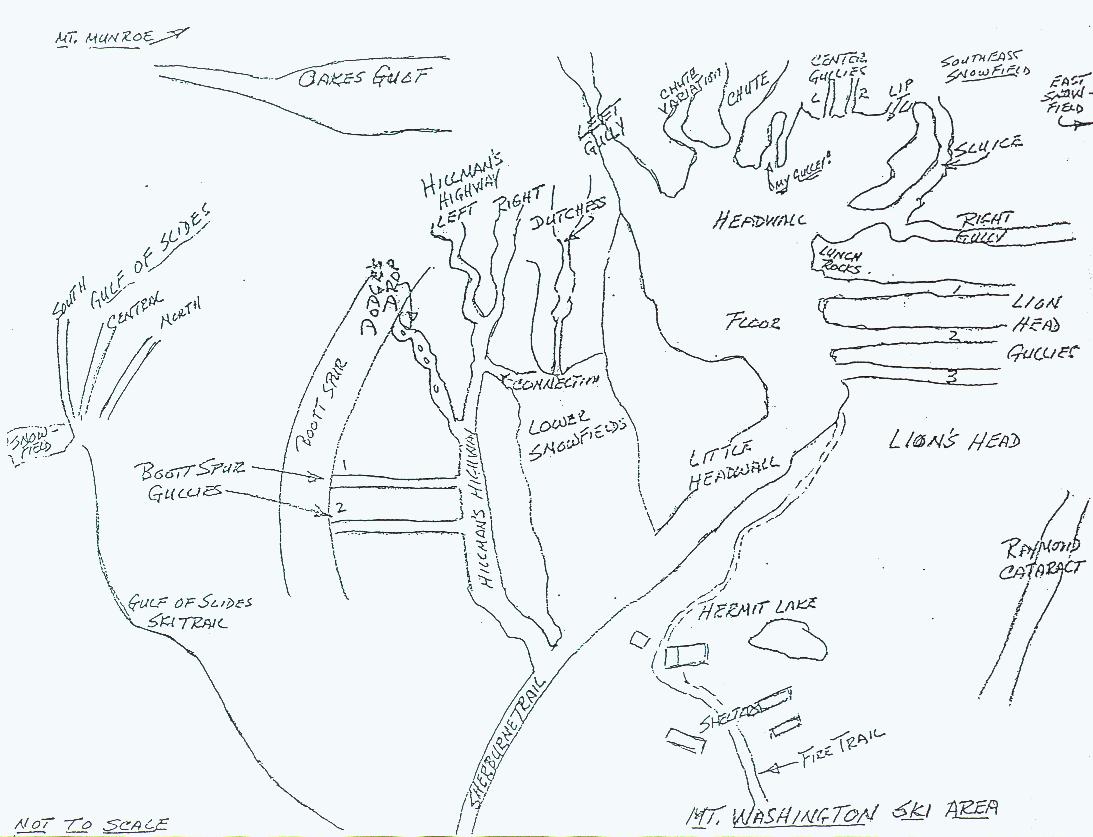 MT. MUNROE
OAKES GULF
CHUTE
VARIATION
CHUTE
CENTER
GULLIES
1
2
LIP
SOUTHEAST
SNOWFIELD
EAST
SNOW-
FIELD
LEFT
GULLY
MY GULLEY!
SLUICE
HILLMAN'S
HIGHWAY
LEFT
RIGHT
DUTCHESS
HEADWALL
RIGHT
GULLY
LUNCH
ROCKS.
GULF OF SLIDES
SOUTH
CENTRAL
NORTH
DODGE'S
DROP
FLOOR
1
LION
HEAD
2
GULLIES
3
BOOTT SPUR
CONNECTION
LOWER
SNOWFIELDS
SNOW-
FIELD
LION'S HEAD
LITTLE
HEADWALL
BOOTT SPUR
GULLIES
1
2
HILLMAN'S HIGHWAY
RAYMOND
CATARACT
GULF OF SLIDES
SKI TRAIL
HERMIT LAKE
SHELTERS
SHERBURNE TRAIL
FIRE TRAIL
NOT TO SCALE
MT. WASHINGTON SKI AREA